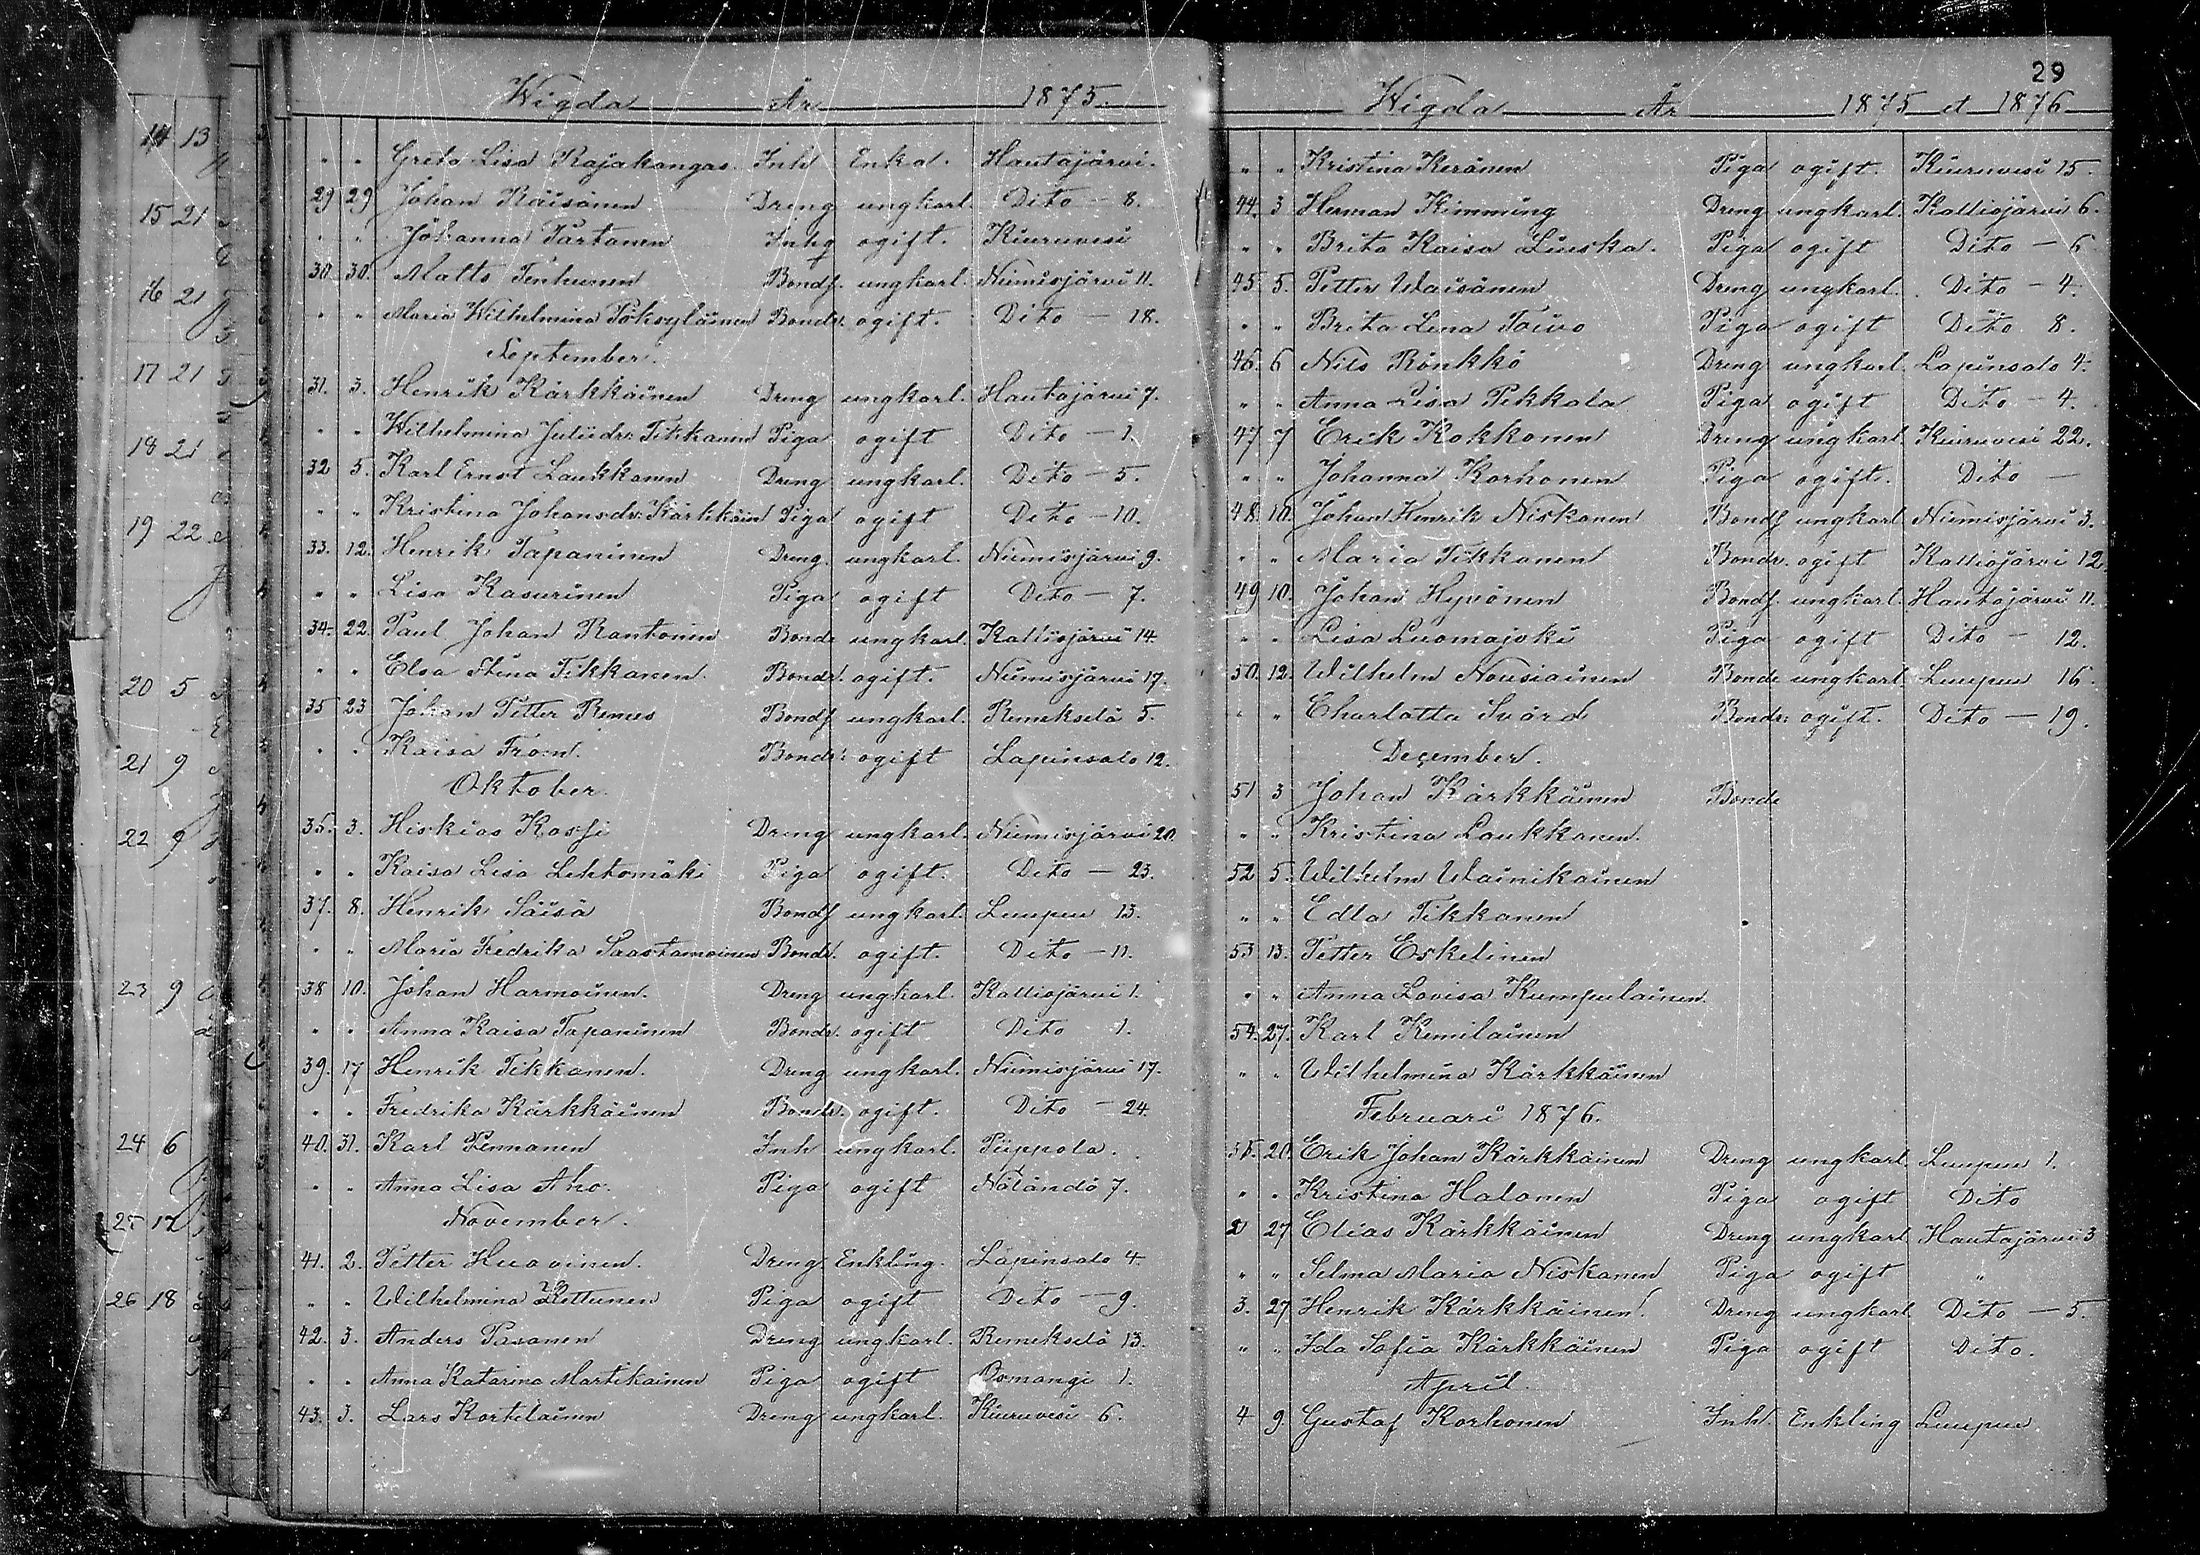 Wigda År 1875.
" " Greta Lisa Rajakangas. Inh Enka. Hautajärvi.
29 29 Johan Räisänen Dreng ungkarl. Dito - 8.
" " Johanna Tartanen Inhg ogift. Kiuruvesi
30. 30. Matts Tenhunen Bondf. ungkarl. Niemisjärvi 11.
" " Maria Wilhelmina Pöksyläinen Bondr. ogift. Dito - 18.
September.
31. 3. Henrik Kärkkäinen Dreng ungkarl. Hautajärvi 7.
" " Wilhelmina Juliidr: Tikkanen Piga ogift Dito - 1.
32 5. Karl Ernst Laukkanen Dreng ungkarl. Dito - 5.
" " Kristina Johansdr: Kärkkäin Piga ogift Dito - 10.
33. 12. Henrik Tapaninen Dreng ungkarl. Niemisjärvi 9.
" " Lisa Kasurinen Piga ogift Dito - 7.
34. 22. Paul Johan Rantonen Bonde ungkarl. Kalliojärvi 14.
" " Elsa Stina Tikkanen. Bondr. ogift. Niemisjärvi 17.
35 23 Johan Petter Remes Bondf ungkarl. Remekselä 5.
" " Kaisa From. Bondr: ogift Lapinsalo 12.
Oktober.
35. 3. Hiskias Kassi Dreng ungkarl. Niemisjärvi 20.
" " Kaisa Lisa Lehtomäki Piga ogift. Dito - 23.
37. 8. Henrik Säisä Bondf ungkarl. Luupuu 13.
" " Maria Fredrika Saastamoinen Bondr. ogift. Dito - 11.
38 10. Johan Harmoinen. Dreng ungkarl. Kalliojärvi 1.
" " Anna Kaisa Tapaninen Bondr. ogift Dito - 1.
39. 17 Henrik Tikkanen. Dreng ungkarl. Niemisjärvi 17.
" " Fredrika Kärkkäinen Bondr. ogift. Dito - 24.
40. 31. Karl Pennanen Inh ungkarl. Piippola.
" " Anna Lisa Aho. Piga ogift Näländö 7.
November.
41. 2. Petter Huovinen. Dreng Enkling. Lapinsalo 4.
" " Wilhelmina Kettunen Piga ogift Dito - 9.
42. 3. Anders Pasanen Dreng ungkarl. Remekselä 13.
" " Anna Katarina Martikainen Piga ogift Osmangi 1.
43. 3. Lars Kortelainen Dreng ungkarl. Kiuruvesi 6.
29
Wigda År 1875 et 1876
" " Kristina Keränen Piga ogift. Kiuruvesi 15.
44. 3 Herman Kimming Dreng ungkarl. Kalliojärvi 6.
" " Brita Kaisa Liuska. Piga ogift Dito - 6
45 5. Petter Waisänen Dreng ungkarl. Dito - 4.
" " Brita Lena Toivo Piga ogift Dito 8.
46 6 Nils Rönkkö Dreng ungkarl. Lapinsalo 4.
" " Anna Lisa Pekkala Piga ogift Dito - 4.
47 7 Erik Kokkonen Dreng ungkarl Kiuruvesi 22.
" " Johanna Korhonen Piga ogift. Dito -
48. 10. Johan Henrik Niskanen Bondf ungkarl Niemisjärvi 3.
" " Maria Tikkanen Bondr. ogift Kalliojärvi 12.
49 10. Johan Hyvönen Bondf. ungkarl. Hautajärvi 11.
" " Lisa Luomajoki Piga ogift Dito - 12.
50 12. Wilhelm Nousiainen Bonde ungkarl. Luupuu 16.
" " Charlotta Svärd Bondr: ogift. Dito - 19.
December.
51 3 Johan Kärkkäinen Bonde
" " Kristina Laukkanen.
52 5. Wilhelm Wainikainen
" " Edla Tikkanen
53 13. Petter Eskelinen
" " Anna Lovisa Kumpulainen.
54. 27. Karl Kemiläinen
" " Wilhelmina Kärkkäinen
Februari 1876.
20. Erik Johan Kärkkäinen Dreng ungkarl Luupuu 1.
" " Kristina Halonen Piga ogift Dito
2 27 Elias Kärkkäinen Dreng ungkarl Hautajärvi 3
" " Selma Maria Niskanen Piga ogift "
3. 27 Henrik Kärkkäinen. Dreng ungkarl Dito - 5.
" " Ida Sofia Kärkkäinen Piga ogift Dito.
April.
4 9. Gustaf Korhonen Inh. Enkling Luupuu.
14 13
15 21
16 21
17 21
18 21
19 22
20 5
21 9
22 9
23 9
24 6
25 17
26 18